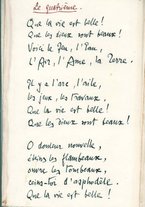 Le quatrième.
Que la vie est belle !
Que les dieux sont beaux !
Voici le Feu, l'Eau,
L'Air, l'Ame, la Terre.
Il y a l'arc, l'aile,
les jeux, les travaux,
Que la vie est belle !
Que les dieux sont beaux !
O douleur nouvelle,
éteins les flambeaux,
ouvre les tombeaux,
ceins-toi d'asphodèle.
Que la vie est belle !